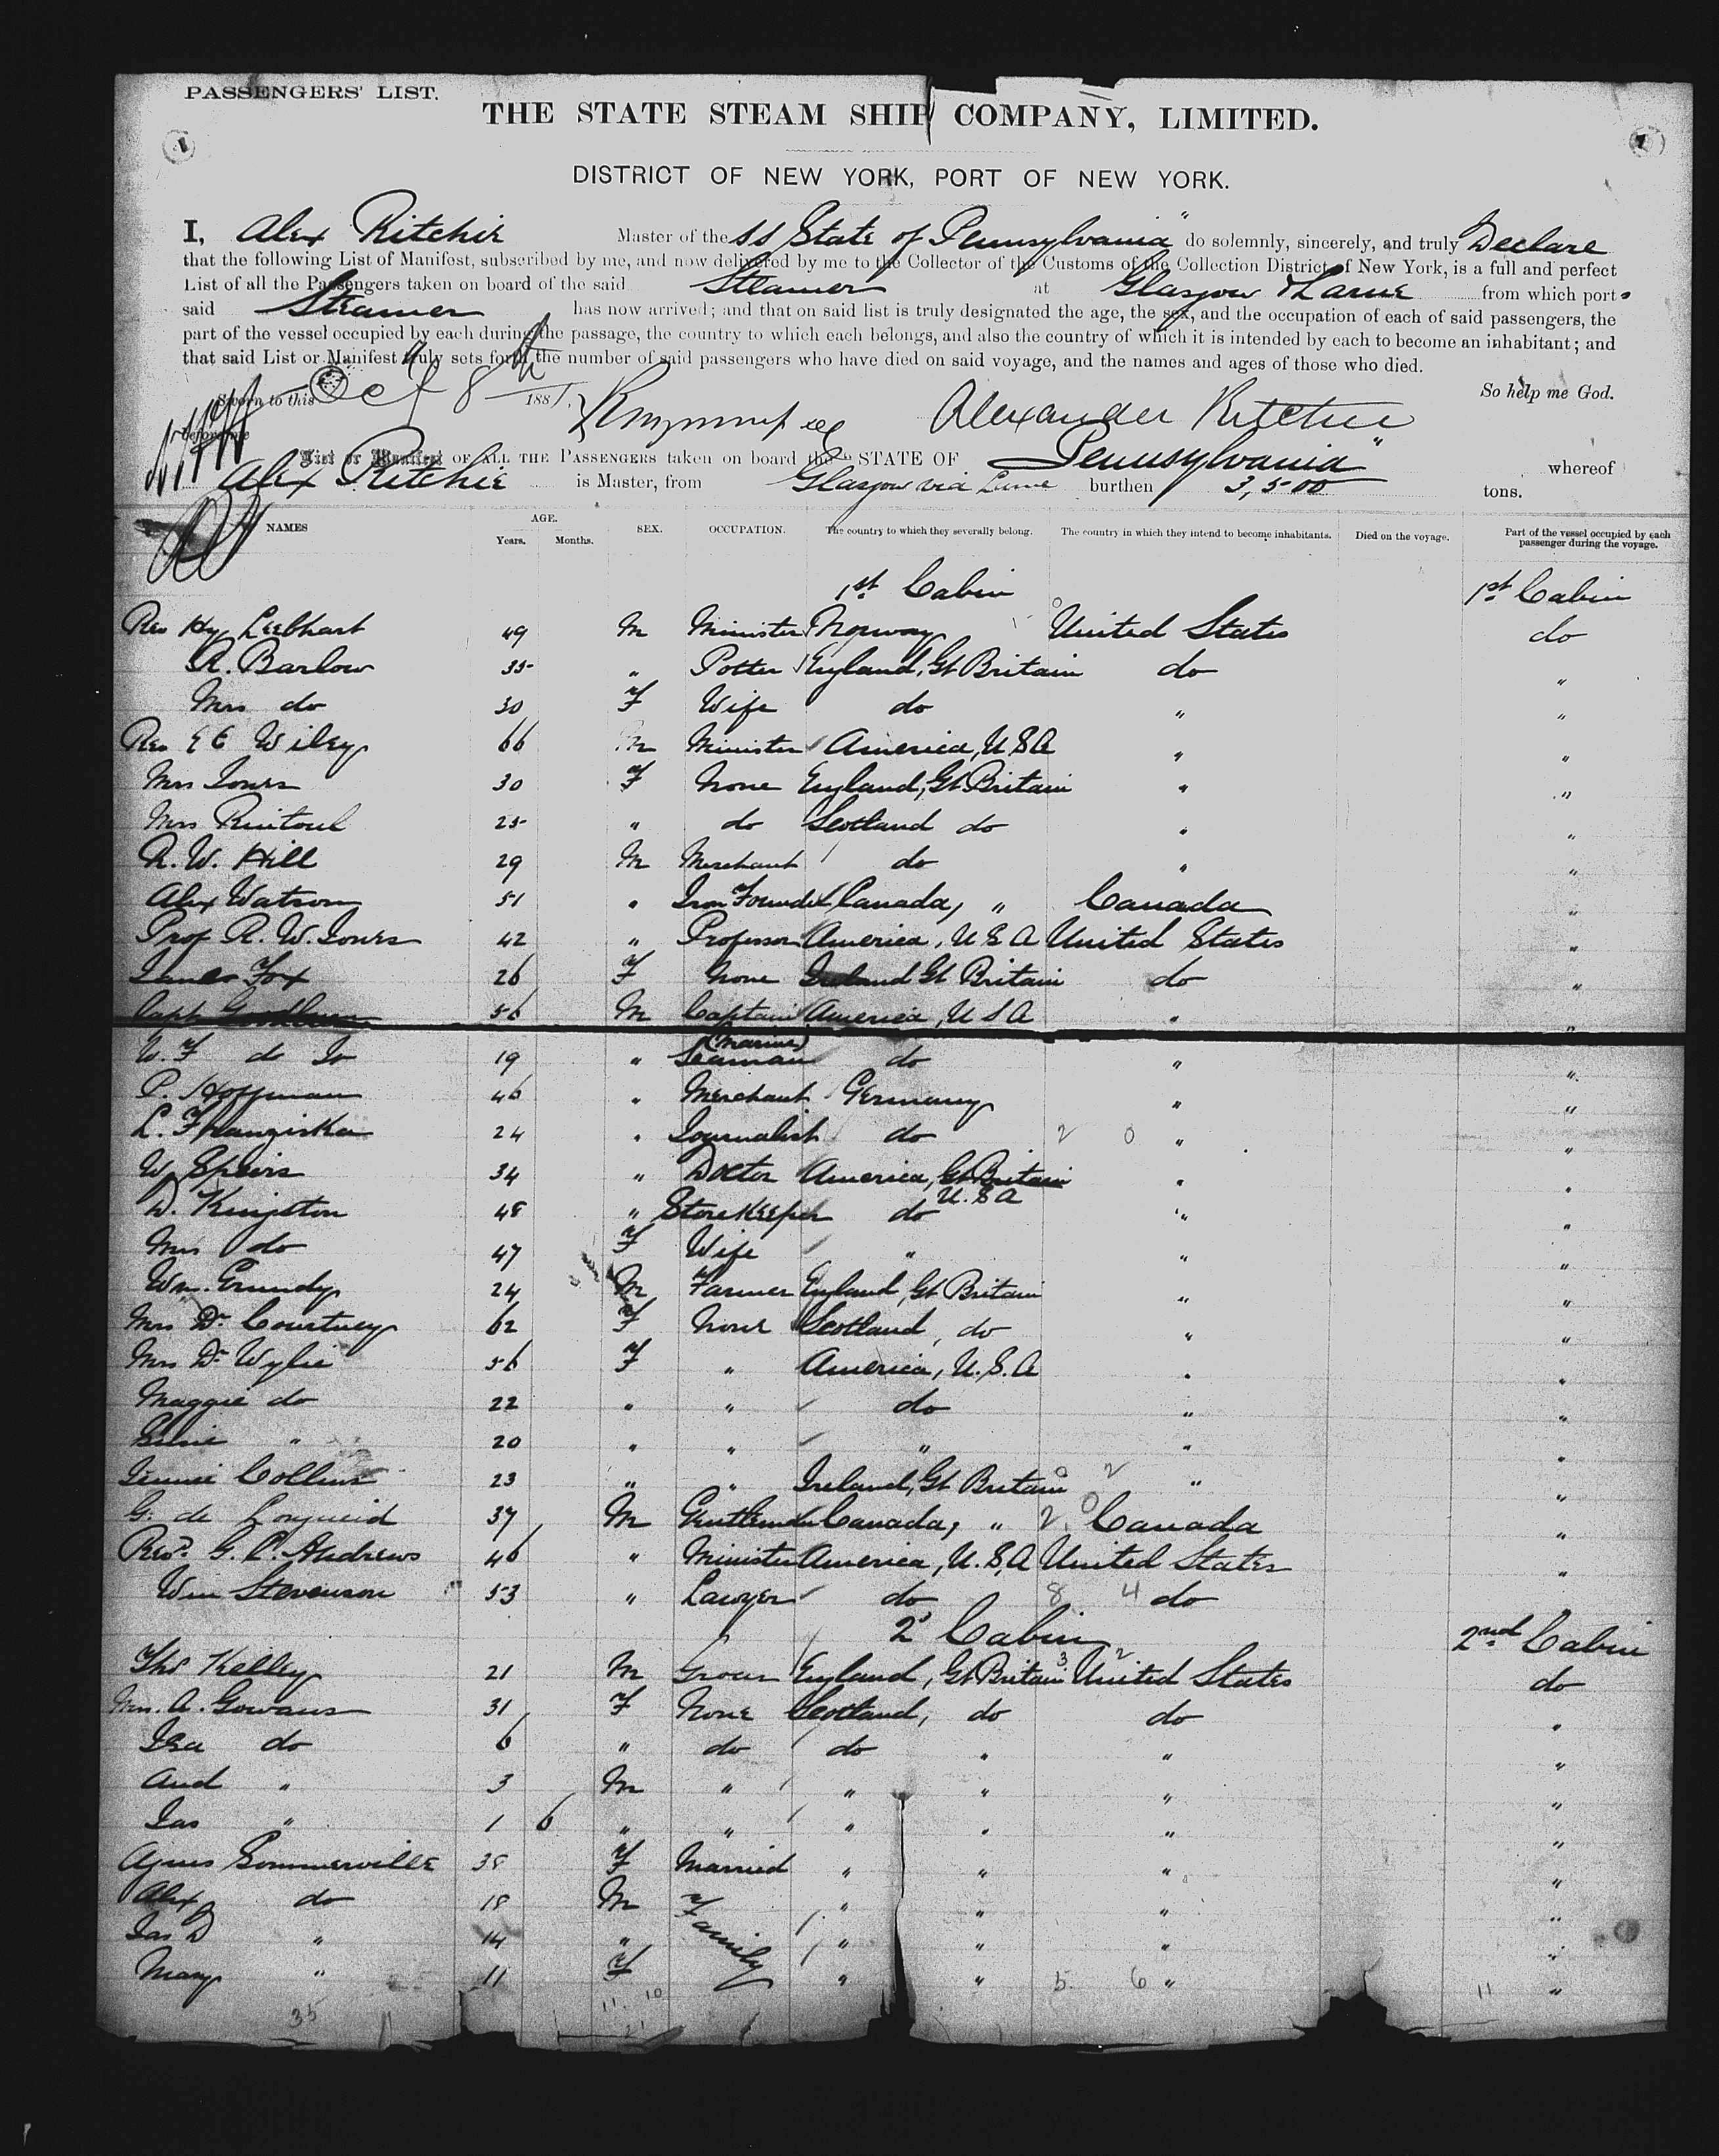 PASSENGERS' LIST.
THE STATE STEAM SHIP COMPANY, LIMITED.
DISTRICT OF NEW YORK, PORT OF NEW YORK.
I, Alex Ritchie Master of the SS State of Pennsylvania" do solemnly, sincerely, and truly Declare
that the following List of Manifest, subscribed by me, and now delivered by me to the Collector of the Customs of the Collection District of New York, is a full and perfect
List of all the Passengers taken on board of the said Steamer at Glasgow & Larne from which ports
said Steamer has now arrived; and that on said list is truly designated the age, the sex, and the occupation of each of said passengers, the
part of the vessel occupied by each during the passage, the country to which each belongs, and also the country of which it is intended by each to become an inhabitant; and
that said List or Manifest truly sets forth the number of said passengers who have died on said voyage, and the names and ages of those who died.
So help me God.
Sworn to this Oct 8th 1881.
before me
Alexander Ritchie
List or Manifest OF ALL THE PASSENGERS taken on board the "STATE OF Pennsylvania" whereof
Alex Ritchie is Master, from Glasgow via Larne burthen 3,500 tons.
NAMES AGE. Years. Months. SEX. OCCUPATION. The country to which they severally belong. The country in which they intend to become inhabitants. Died on the voyage. Part of the vessel occupied by each passenger during the voyage.
1st Cabin 1st Cabin
Rev Hy Leebhart 49 M Minister Norway United States do
R. Barlow 35 " Potter England, Gt Britain do "
Mrs do 30 F Wife do " "
Rev E E Wiley 66 M Minister America, U.S.A " "
Mrs Jones 30 F None England, Gt Britain " "
Mrs Rintoul 25 " do Scotland do " "
R. W. Hill 29 M Merchant do " "
Alex Watson 51 " Iron Founder Canada, " Canada "
Prof R. W. Jones 42 " Professor America, U.S.A United States "
Fox 26 F None Ireland Gt Britain do "
Capt 56 M Captain America, U S A " "
(Marine)
W. F do Jr 19 " Seaman do " "
P. Hoffman 46 " Merchant Germany " "
L. Franziska 24 " Journalist do 2 0 " "
W. Speirs 34 " Doctor America, Gt Britain " "
U.S.A
D. Kingston 48 " Storekeeper do " "
Mrs do 47 F Wife " " "
Wm. Grundy 24 M Farmer England, Gt Britain " "
Mrs Dr Courtney 62 F None Scotland, do " "
Mrs Dr Wylie 56 F " America, U.S.A " "
Maggie do 22 " " do " "
" 20 " " " " "
Jennie Collins 23 " " Ireland, Gt Britain 0 2 " "
G. de 37 M Gentleman Canada, " 2 0 Canada "
Revd. G. C. Andrews 46 " Minister America, U.S.A United States "
Wm Stevenson 53 " Lawyer do 8 4 do "
2d Cabin 2nd Cabin
Thos Kelley 21 M Grocer England, Gt Britain 3 2 United States do
Mrs. A. Gowans 31 F None Scotland, do do "
Isa do 6 " do do " " "
And " 3 M " " " " "
Jas " 1 6 " " " " " "
Agnes Sommerville 38 F Married " " " "
Alex do 18 M Family " " " "
Jas D " 14 " " " " "
Mary " 11 F " " 5 6 " 11 "
35 11. 10
21